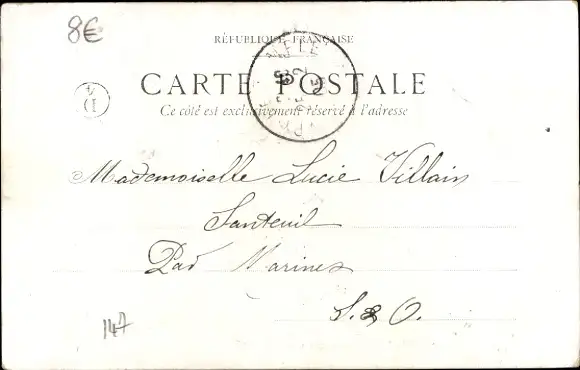 8€
RÉPUBLIQUE FRANÇAISE
NFLE
CARTE POSTALE
Ce côté est exclusivement réservé à l'adresse
Mademoiselle Lucie Villain
Santeuil
Par Marines
S. & O.
147